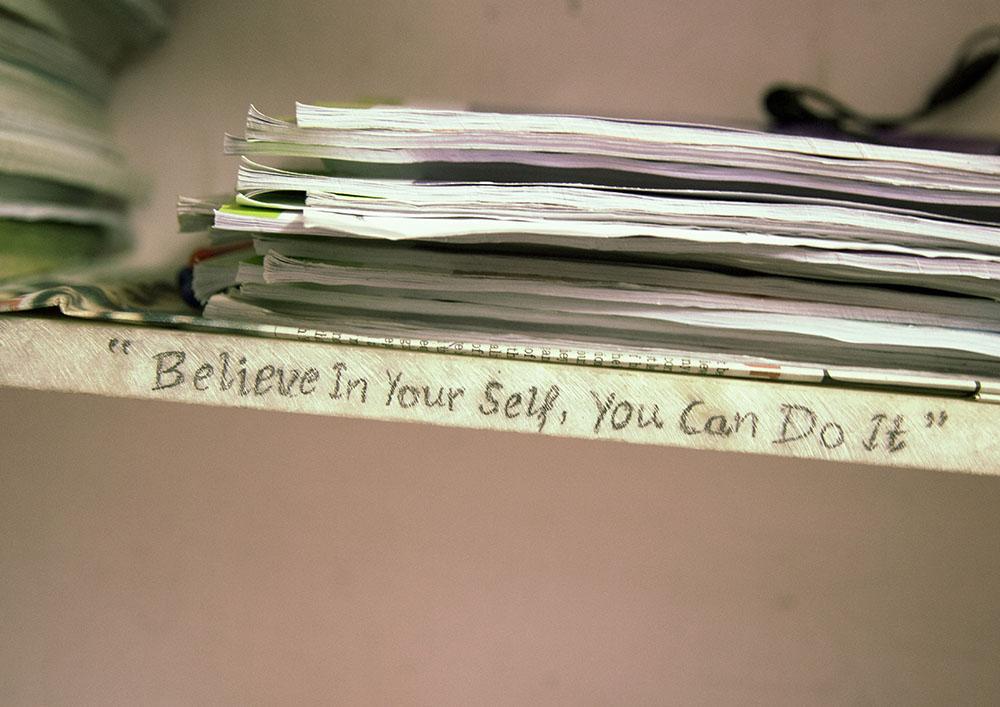 “ Believe In Your Self, You Can Do It ”